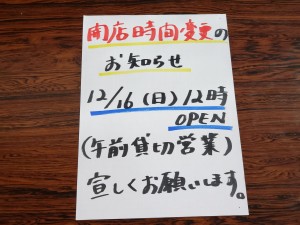 開店時間変更の
お知らせ
12/16(日)12時
OPEN
(午前貸切営業)
宜しくお願いします。